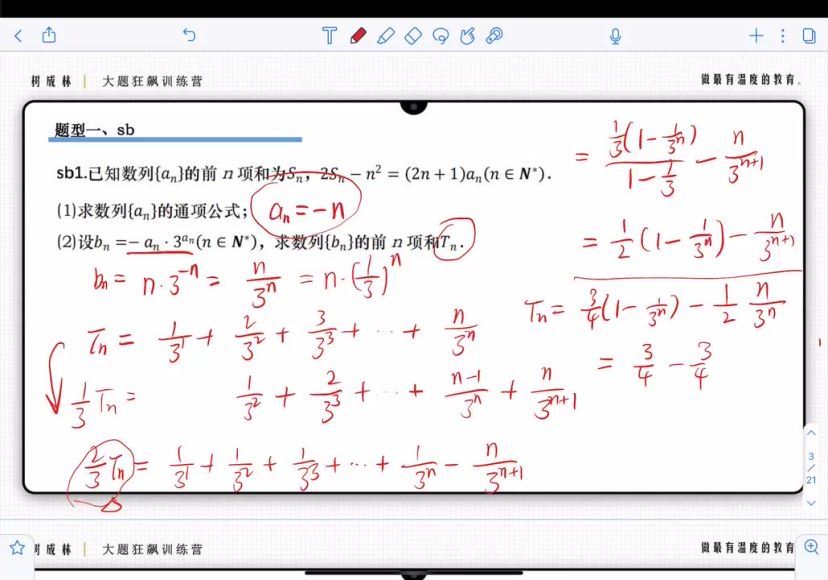 树成林 | 大题狂飙训练营
做最有温度的教育。
题型一、sb
sb1.已知数列{aₙ}的前 n 项和为Sₙ，2Sₙ − n² = (2n + 1)aₙ(n ∈ N*).
(1)求数列{aₙ}的通项公式；
aₙ = −n
(2)设bₙ = − aₙ · 3^(aₙ)(n ∈ N*)，求数列{bₙ}的前 n 项和Tₙ.
bₙ = n·3^(−n) = n/3^n = n·(1/3)^n
Tₙ = 1/3^1 + 2/3^2 + 3/3^3 + ··· + n/3^n
1/3 Tₙ = 1/3^2 + 2/3^3 + ··· + (n−1)/3^n + n/3^(n+1)
2/3 Tₙ = 1/3^1 + 1/3^2 + 1/3^3 + ··· + 1/3^n − n/3^(n+1)
= (1/3(1 − 1/3^n))/(1 − 1/3) − n/3^(n+1)
= 1/2 (1 − 1/3^n) − n/3^(n+1)
Tₙ = 3/4(1 − 1/3^n) − 1/2 n/3^n
= 3/4 − 3/4
3
/
21
树成林 | 大题狂飙训练营
做最有温度的教育